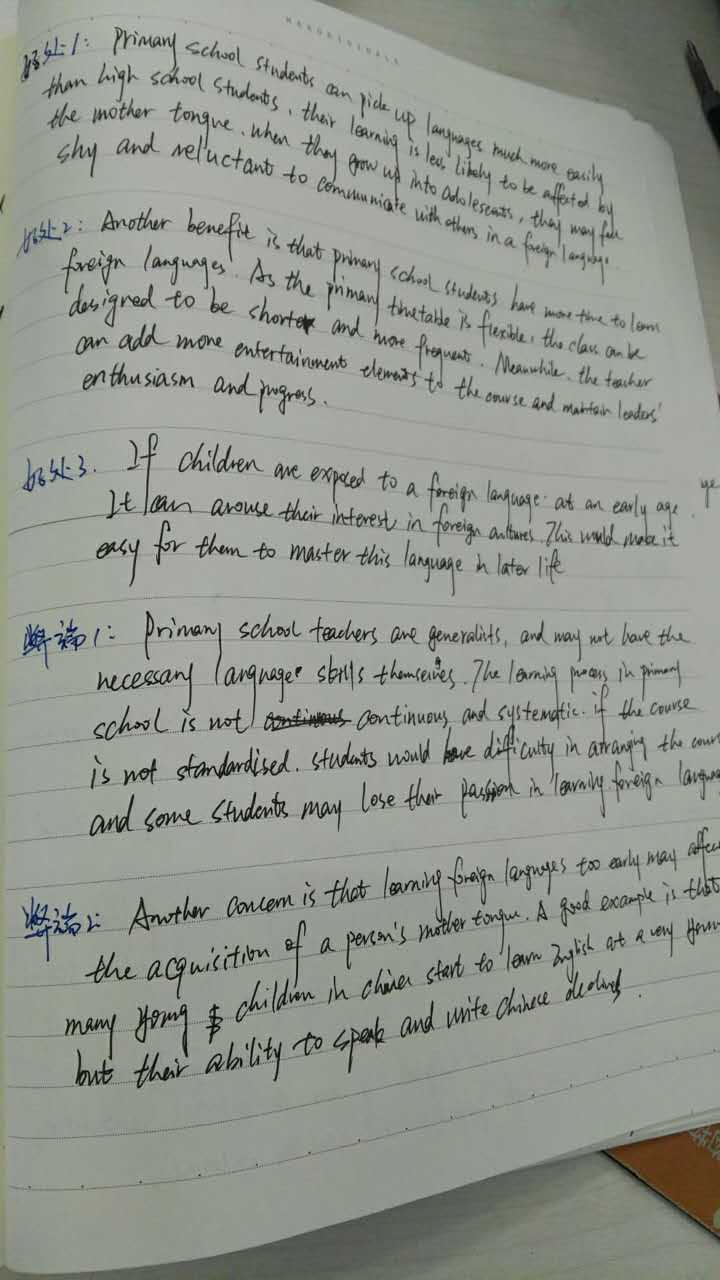 好处1: Primary school students can pick up languages much more easily
than high school students, their learning is less likely to be affected by
the mother tongue. when they grow up into adolescents, they may feel
shy and reluctant to communicate with others in a foreign language.
好处2: Another benefit is that primary school students have more time to learn
foreign languages. As the primary timetable is flexible, the class can be
designed to be shorter and more frequent. Meanwhile, the teacher
can add more entertainment elements to the course and maintain leaders'
enthusiasm and progress.
好处3. If children are exposed to a foreign language at an early age.
It can arouse their interest in foreign cultures. This would make it
easy for them to master this language in later life
弊端1: Primary school teachers are generalists, and may not have the
necessary language skills themselves. The learning process in primary
school is not continuous and systematic. if the course
is not standardised. students would have difficulty in arranging the cour
and some students may lose their passion in learning foreign langua
弊端2: Another concern is that learning foreign languages too early may affec
the acquisition of a person's mother tongue. A good example is that
many young children in china start to learn English at a very youn
but their ability to speak and write chinese declined.